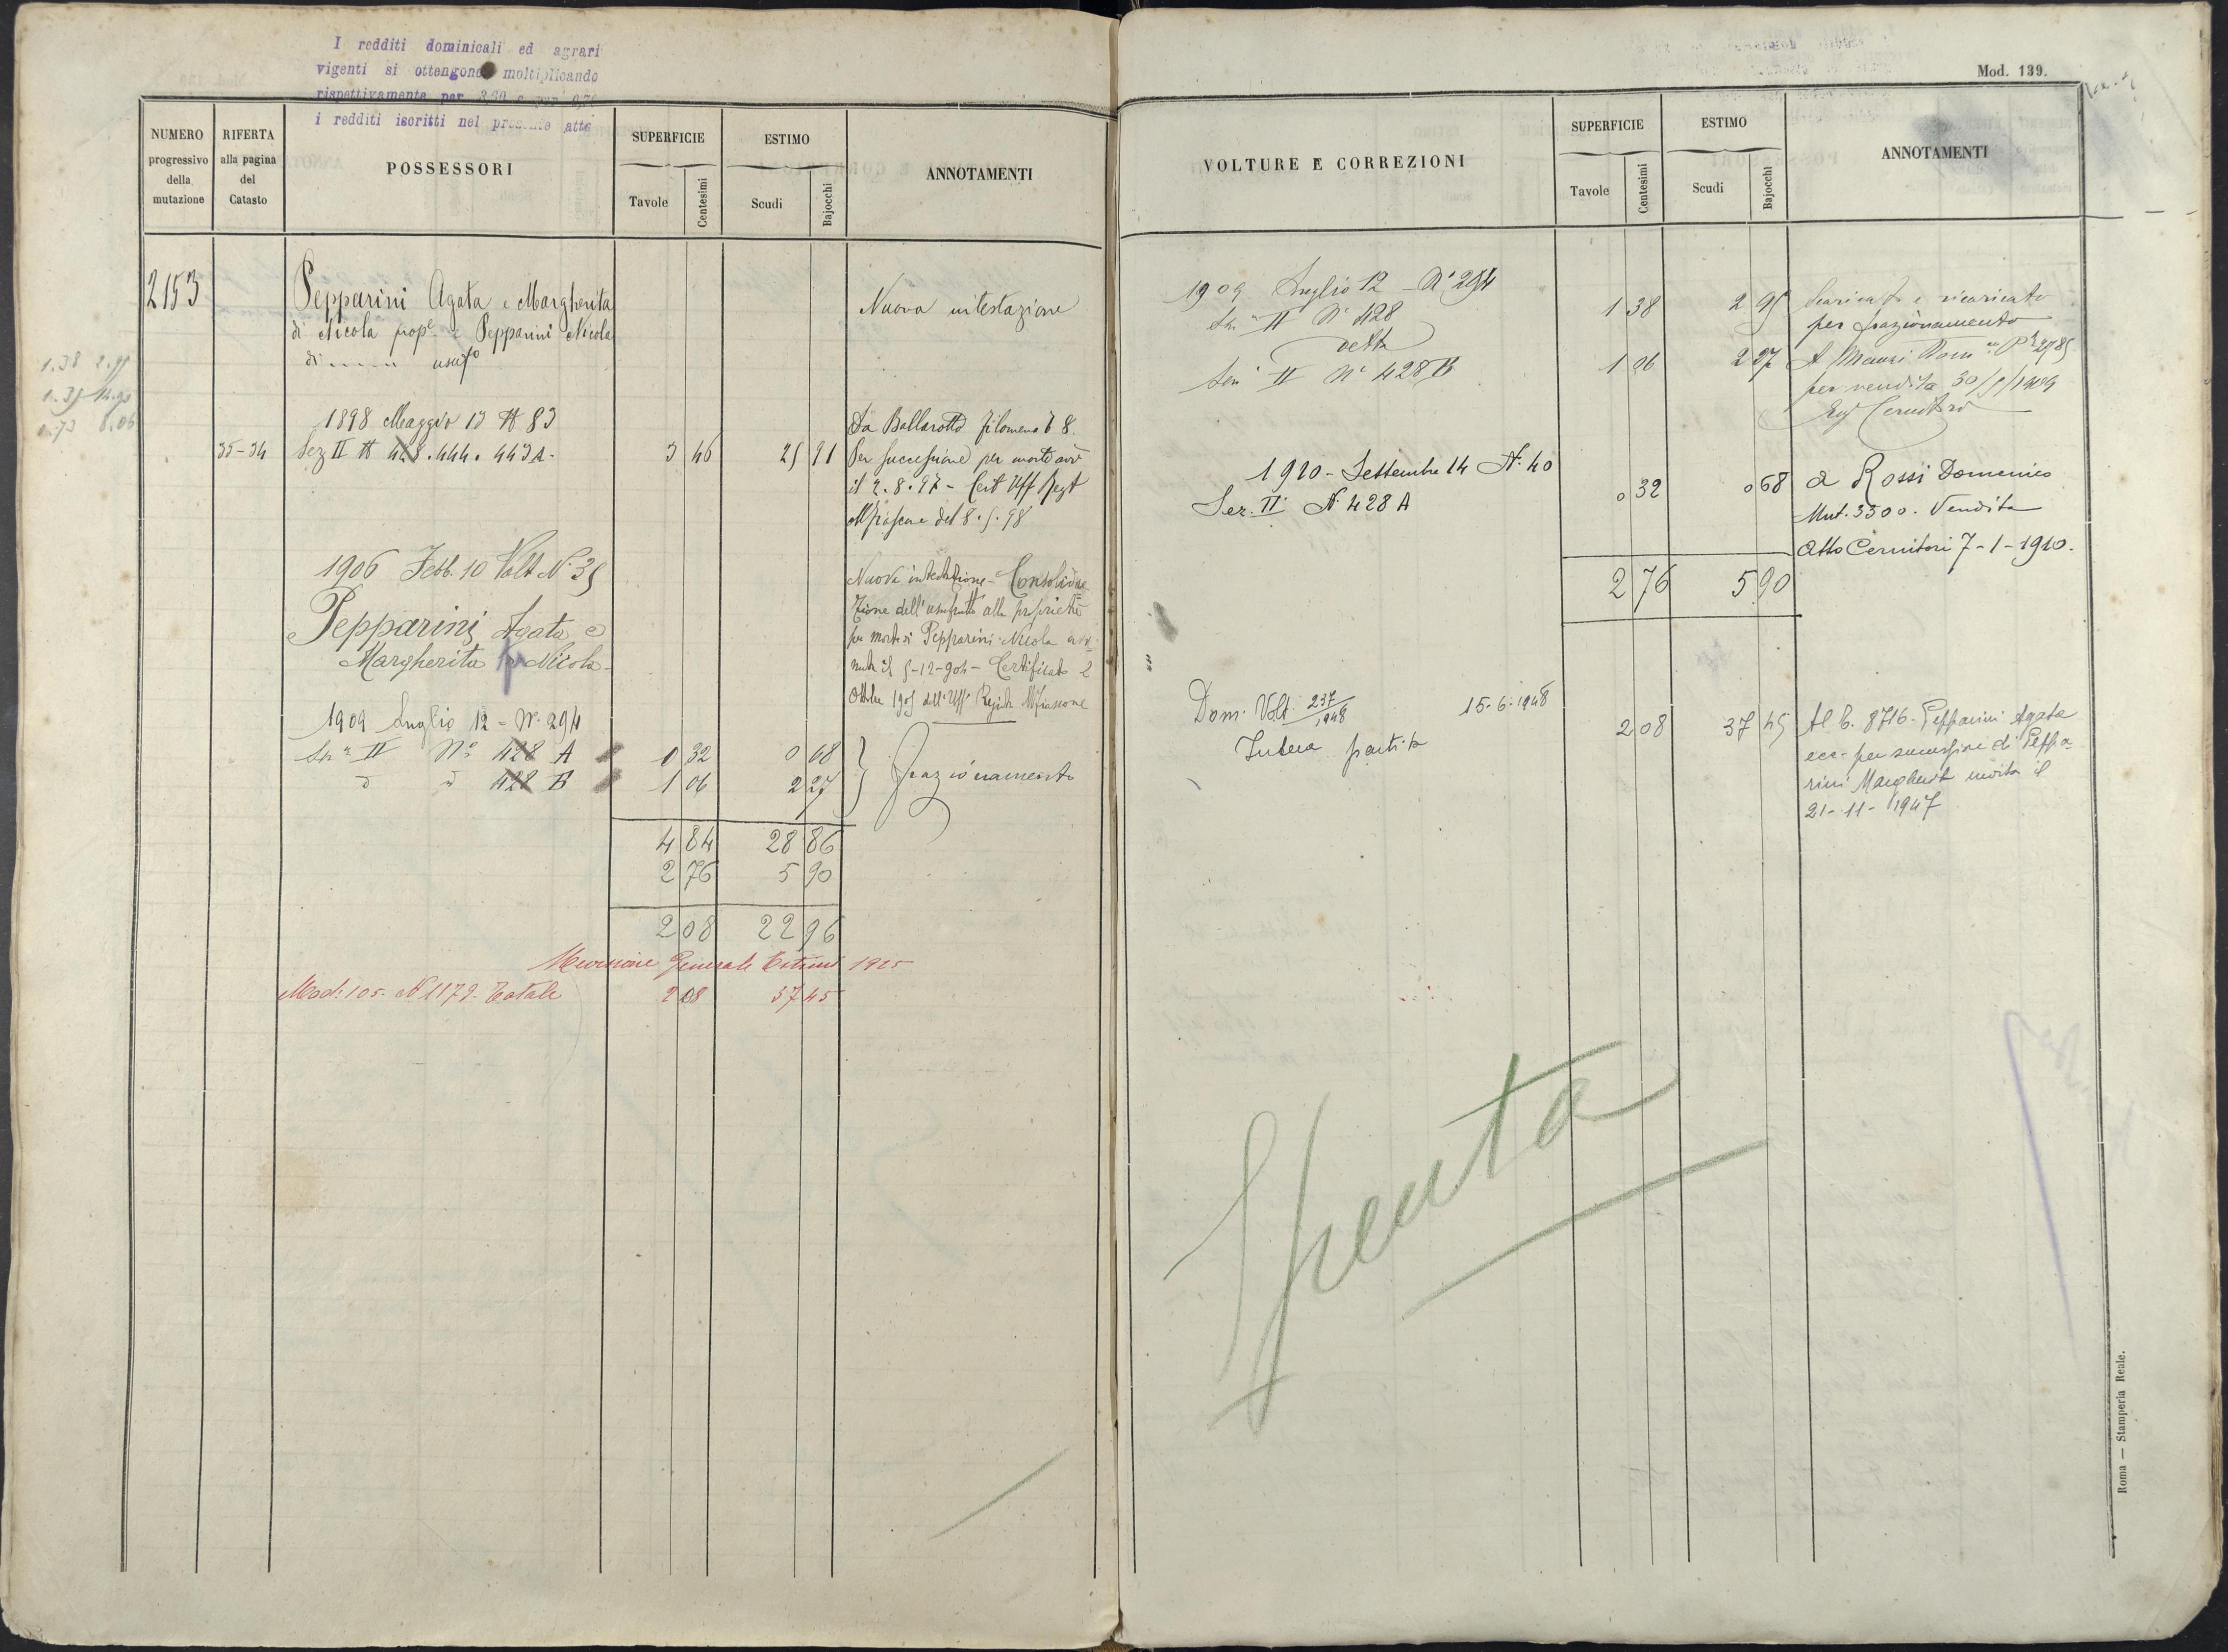 I redditi dominicali ed agrari
vigenti si ottengono moltiplicando
rispettivamente per 3,50 e per 0,70
i redditi iscritti nel presente atto
NUMERO progressivo della mutazione
RIFERTA alla pagina del Catasto
POSSESSORI
SUPERFICIE
Tavole Centesimi
ESTIMO
Scudi Bajocchi
ANNOTAMENTI
2153 Pepparini Agata e Margherita Nuova intestazione
di Nicola prop.e e Pepparini Nicola
di ...... usufo
1.38 2.95
1.35 14.90
0.73 8.06
1898 Maggio 13 N 83 Da Ballarotto Filomena
35-34 Sez II N 428. 444. 443 A. 3 46 25 91 Per successione per morte avv
il 2.8.97 - Cert Uff Regt
Mfiascone del 8.5.98
1906 Febb. 10 Volt N. 35 Nuova intestazione - Consolida
zione dell'usufrutto alla proprietà
Pepparini Agata e per morte di Pepparini Nicola avve
Margherita fu Nicola nuta il 5-12-904 - Certificato 2
Ottobre 1905 dell'Uff. Registro Mfiascone
1909 Luglio 12 - N. 294
Sen II No 428 A 0 32 0 68 Frazionamento
428 B 1 06 2 27
4 84 28 86
2 76 5 90
2 08 22 96
Revisione Generale Estimi 1925
Mod. 105. N 1179. Totale 2 08 37 45
Mod. 139.
VOLTURE E CORREZIONI
SUPERFICIE
Tavole Centesimi
ESTIMO
Scudi Bajocchi
ANNOTAMENTI
1909 Luglio 12 - No 294
Sen II No 428 1 38 2 95 Scaricato e ricaricato
per frazionamento
detta
Sen II No 428 B 1 06 2 27 A Mauri Dom
per vendita 30/1/1909
1910 - Settembre 14 N. 40
Sez. II N. 428 A 0 32 0 68 a Rossi Domenico
Mut. 3300. Vendita
Atto Cernitori 7-1-1910.
2 76 5 90
Dom. Volt. 237/1948 15-6-1948
Intera partita 2 08 37 45 Al P. 8716 - Pepparini Agata
ecc. per successione di Peppa-
rini Margherita morta il
21-11-1947
Spenta
Roma — Stamperia Reale.